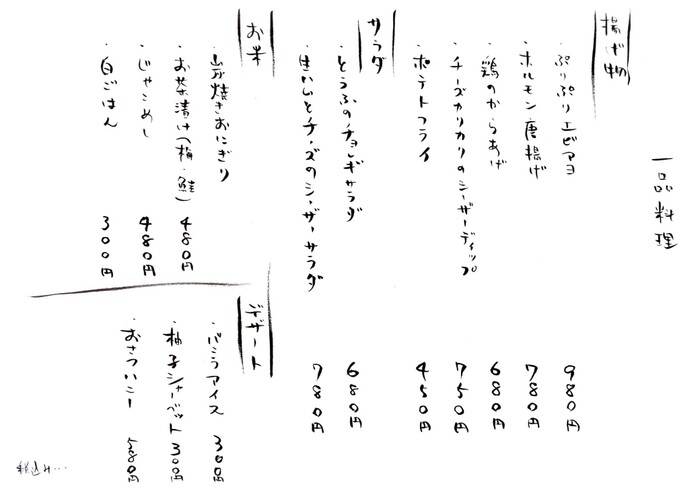 一品料理
揚げ物
・ぷりぷりエビマヨ 980円
・ホルモン唐揚げ 780円
・鶏のからあげ 680円
・チーズカリカリのシーザーディップ 750円
・ポテトフライ 450円
サラダ
・とうふのチョレギサラダ 680円
・生ハムとチーズのシーザーサラダ 780円
お米
・炭焼きおにぎり
・お茶漬け(梅・鮭) 480円
・じゃこめし 480円
・白ごはん 300円
デザート
・バニラアイス 300円
・柚子シャーベット 300円
・おさつハニー 580円
税込み…